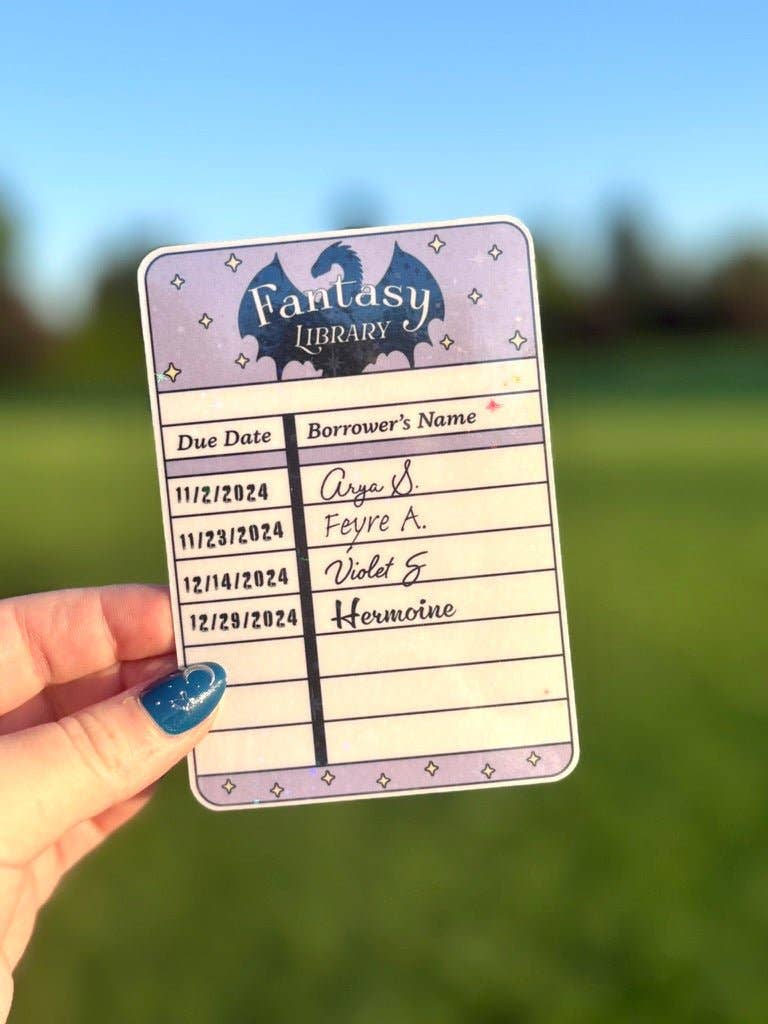 Fantasy
Library
Due Date Borrower's Name
11/2/2024 Arya S.
11/23/2024 Feyre A.
12/14/2024 Violet S
12/29/2024 Hermoine